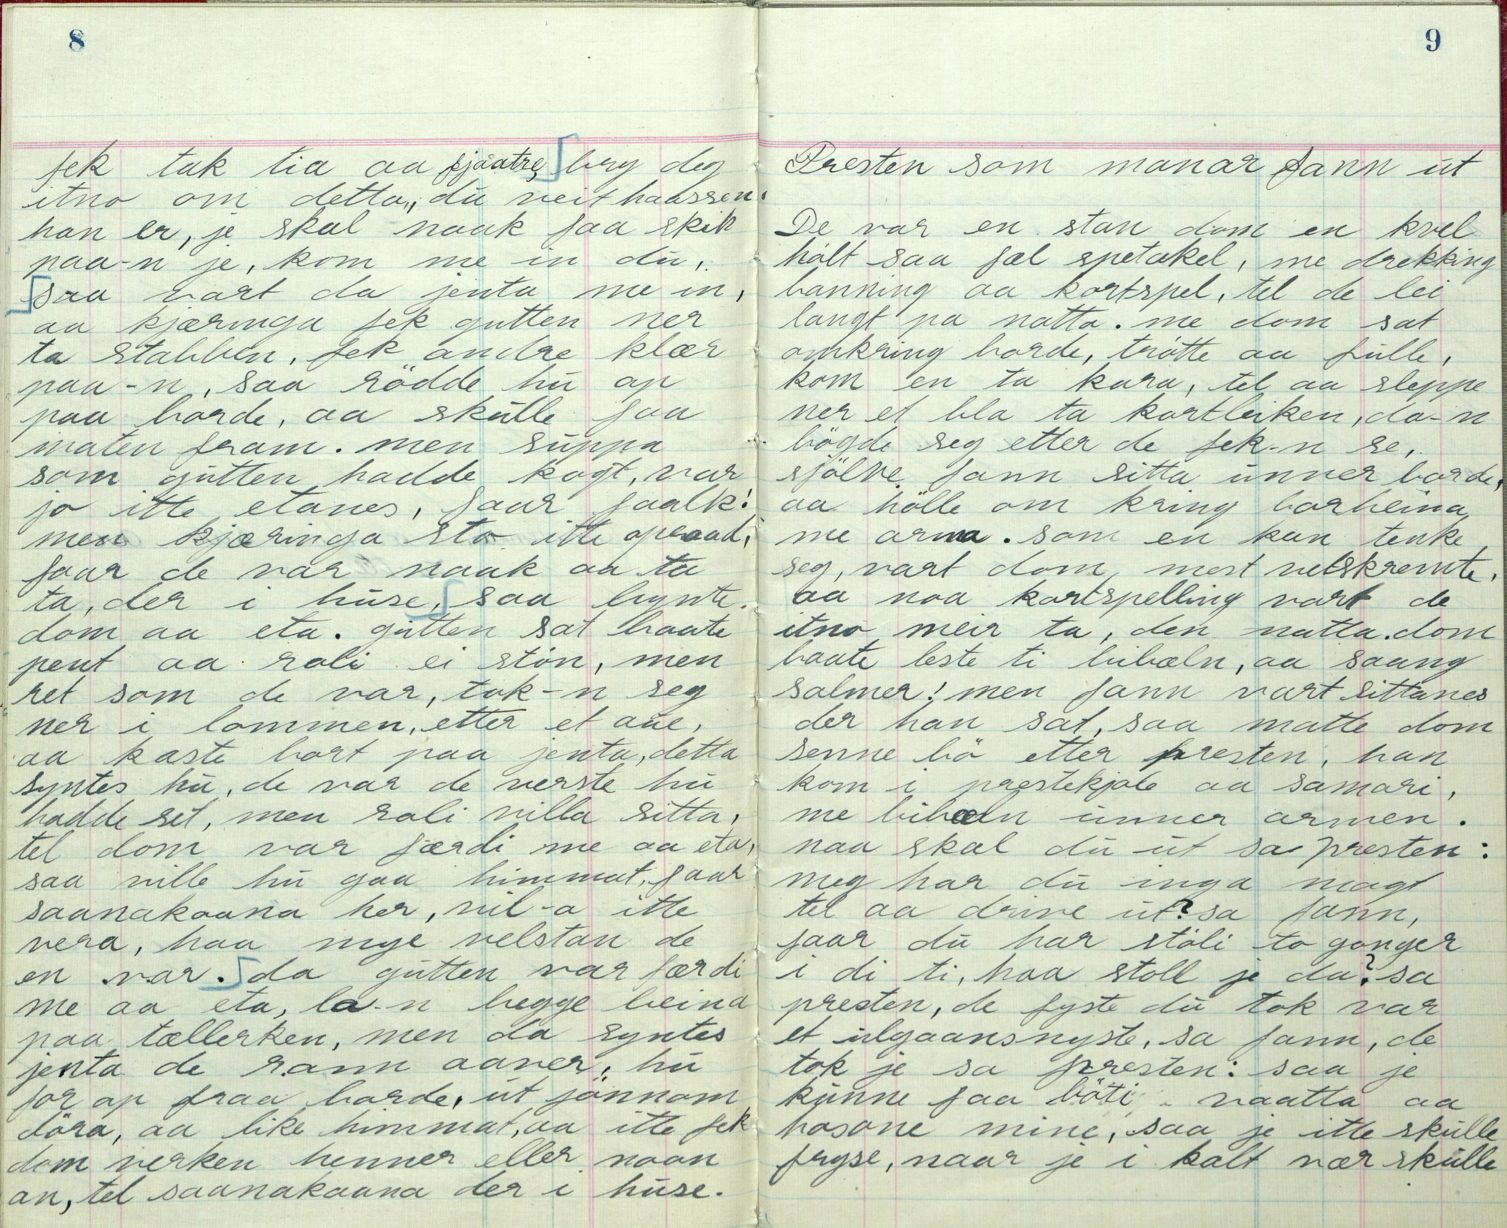 8
fek tak tia aa fjaatre, bry deg
itno om detta, du veit haassen
han er, je skal naak faa skik
paa-n je, kom me in du,
saa vart da jenta me in,
aa kjæringa fek gutten ner
ta stabben, fek andre klær
paa-n, saa rödde hu op
paa borde, aa skulle faa
maten fram. men suppa
som gutten hadde kogt, var
jo itte etanes, faar faalk!
men kjæringa sto itte opraadi
faar de var naak aa ta
ta, der i huse, saa bynte
dom aa eta. gutten sat baate
pent aa roli ei stön, men
ret som de var, tok-n seg
ner i lommen, etter et aue,
aa kaste bort paa jenta, detta
syntes hu, de var de verste hu
hadde set, men roli villa sitta,
tel dom var færdi me aa eta,
saa ville hu gaa himmat, faar
saanakaana her, vil-a itte
vera, haa mye velstan de
en var. da gutten var færdi
me aa eta, la-n begge beina
paa tællerken, men da syntes
jenta de rann aaver, hu
for op fraa borde, ut jönnom
döra, aa like himmat, aa itte fek
dom verken henner eller noan
an, tel saanakaana der i huse.
9
Presten som manar fann ut
De var en stan dom en kvel
hölt saa fæl spetakel, me drekking
banning aa kortspel, tel de lei
langt pa natta. me dom sat
omkring borde, trötte aa fulle,
kom en ta kara, tel aa sleppe
ner et bla ta kortleiken, da-n
bögde seg etter de fek-n se,
sjölve fann sitta unner borde,
aa hölle om kring borbeina
me arma. som en kan tenke
seg, vart dom mest vetskremte,
aa noa kortspelling vart de
itno meir ta, den natta. dom
baate leste ti bibæln, aa saang
salmer! men fann vart sittanes
der han sat, saa matte dom
senne bö etter presten, han
kom i prestekjole aa samari,
me bibæln unner armen.
naa skal du ut sa presten:
meg har du inga magt
tel aa drive ut? sa fann,
faar du har stöli to gonger
i di ti, haa stoll je da? sa
presten, de fyste du tok var
et ulgaansnyste, sa fann, de
tok je sa presten: saa je
kunne faa böti vaatta aa
hosone mine, saa je itte skulle
fryse, naar je i kalt vær skulle